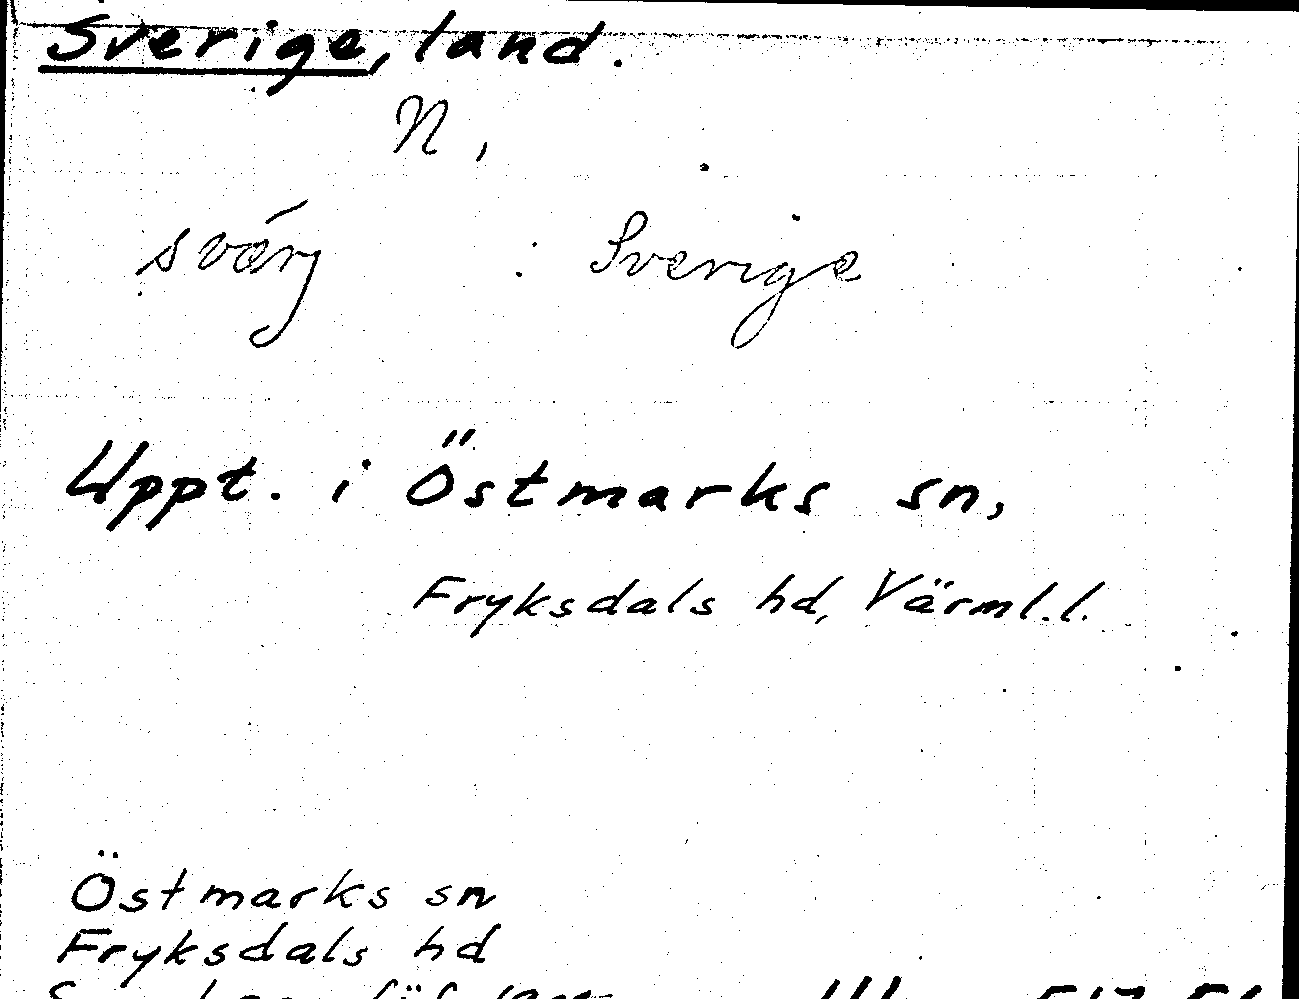 Sverige, land.
N,
svǽrj : Sverige
Uppt. i Östmarks sn,
Fryksdals hd, Värml.l.
Östmarks sn
Fryksdals hd